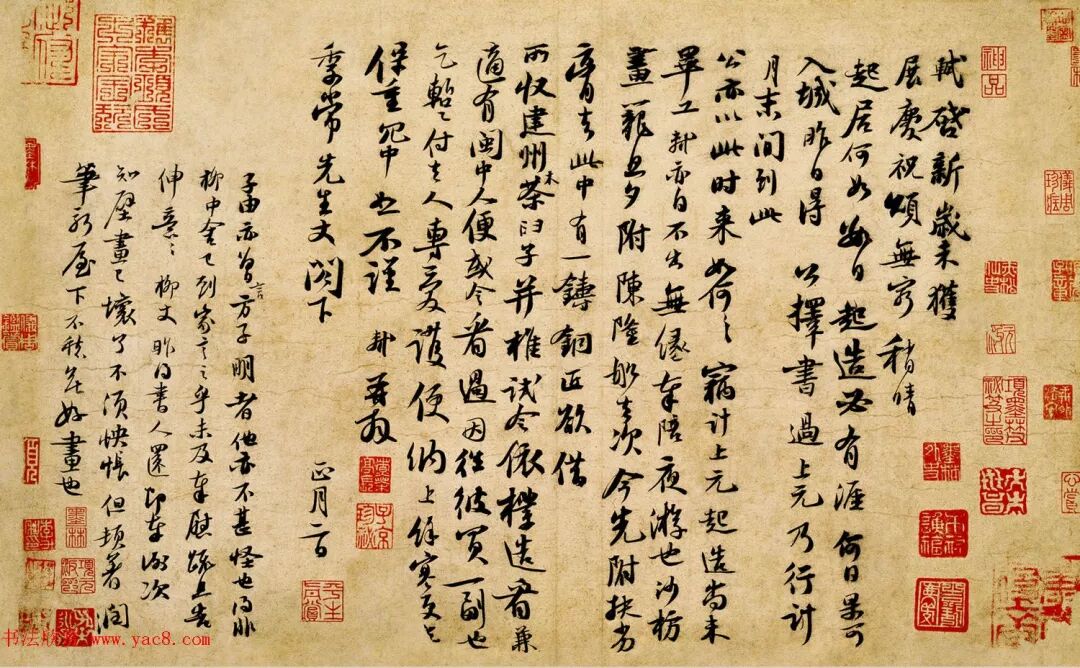 軾啓新歲未獲
展慶祝頌無窮稍晴
起居何如數日起造必有涯何日果可
入城昨日得公擇書過上元乃行計
月末間到此
公亦以此時來如何〻竊計上元起造尚未
畢工軾亦自不出無緣奉陪夜游也沙枋
畫籠旦夕附陳隆船去次今先附扶劣
膏去此中有一鑄銅匠欲借
所收建州木茶臼子并椎試令依樣造看兼
適有閩中人便或令看過因往彼買一副也
乞暫付去人專愛護便納上餘寒更乞
保重冗中恕不謹 軾再拜
季常先生丈閣下 正月二日
子由亦曾言方子明者他亦不甚怪也得非
柳中舍已到家言之乎未及奉慰疏且告
伸意〻柳丈昨得書人還即奉謝次
知壁畫已壞了不須怏悵但頓著潤
筆新屋下不愁無好畫也
神品
www.yac8.com